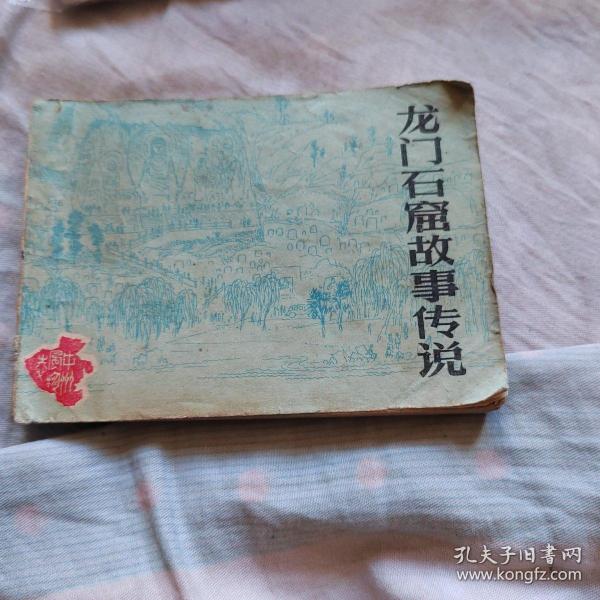 龙门石窟故事传说
中州
孔夫子旧書网
www.kongfz.com